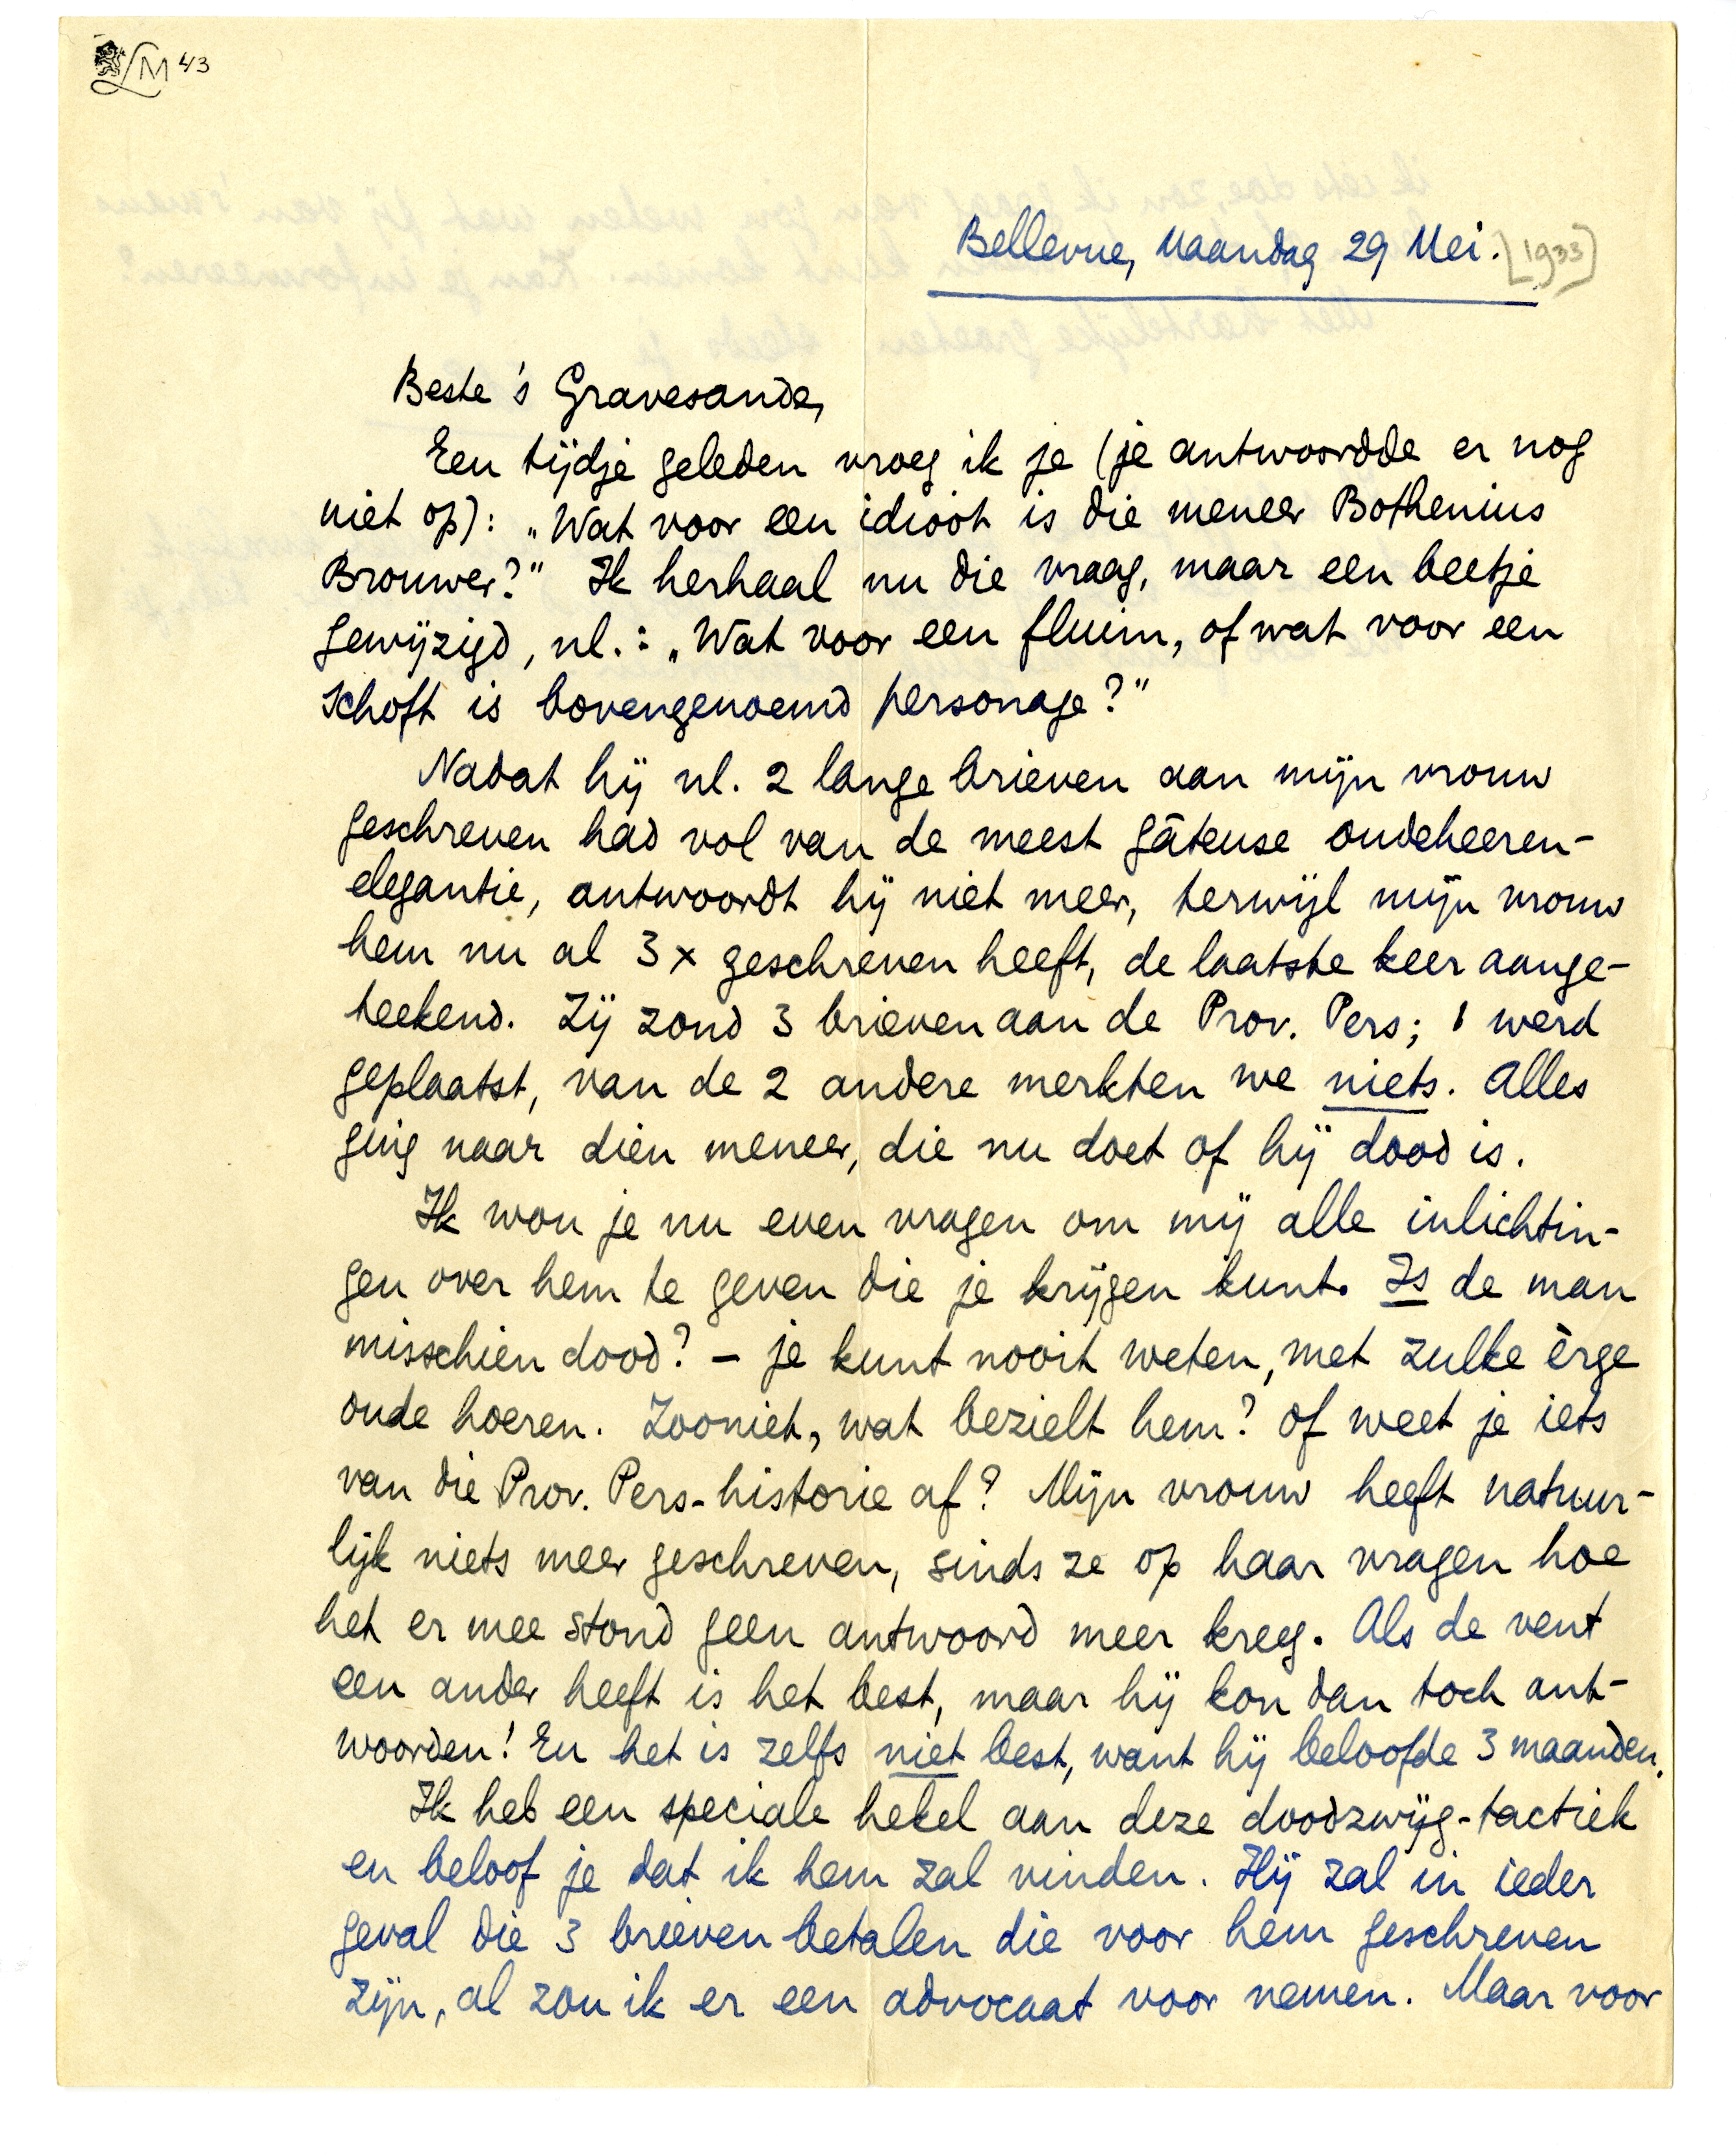 LM 43
Bellevue, Maandag 29 Mei. [1933]
Beste 's Gravesande,
Een tijdje geleden vroeg ik je (je antwoordde er nog
niet op): „Wat voor een idioot is die meneer Bothenius
Brouwer?" Ik herhaal nu die vraag, maar een beetje
gewijzigd, nl.: „Wat voor een fluim, of wat voor een
schoft is bovengenoemd personage?"
Nadat hij nl. 2 lange brieven aan mijn vrouw
geschreven had vol van de meest gâteuse oudeheeren-
elegantie, antwoordt hij niet meer, terwijl mijn vrouw
hem nu al 3 x geschreven heeft, de laatste keer aange-
teekend. Zij zond 3 brieven aan de Prov. Pers; 1 werd
geplaatst, van de 2 andere merkten we niets. Alles
ging naar dien meneer, die nu doet of hij dood is.
Ik wou je nu even vragen om mij alle inlichtin-
gen over hem te geven die je krijgen kunt. Is de man
misschien dood? – je kunt nooit weten, met zulke èrge
oude hoeren. Zooniet, wat bezielt hem? Of weet je iets
van die Prov. Pers-historie af? Mijn vrouw heeft natuur-
lijk niets meer geschreven, sinds ze op haar vragen hoe
het er mee stond geen antwoord meer kreeg. Als de vent
een ander heeft is het best, maar hij kon dan toch ant-
woorden! En het is zelfs niet best, want hij beloofde 3 maanden.
Ik heb een speciale hekel aan deze doodzwijg-tactiek
en beloof je dat ik hem zal vinden. Hij zal in ieder
geval die 3 brieven betalen die voor hem geschreven
zijn, al zou ik er een advocaat voor nemen. Maar voor